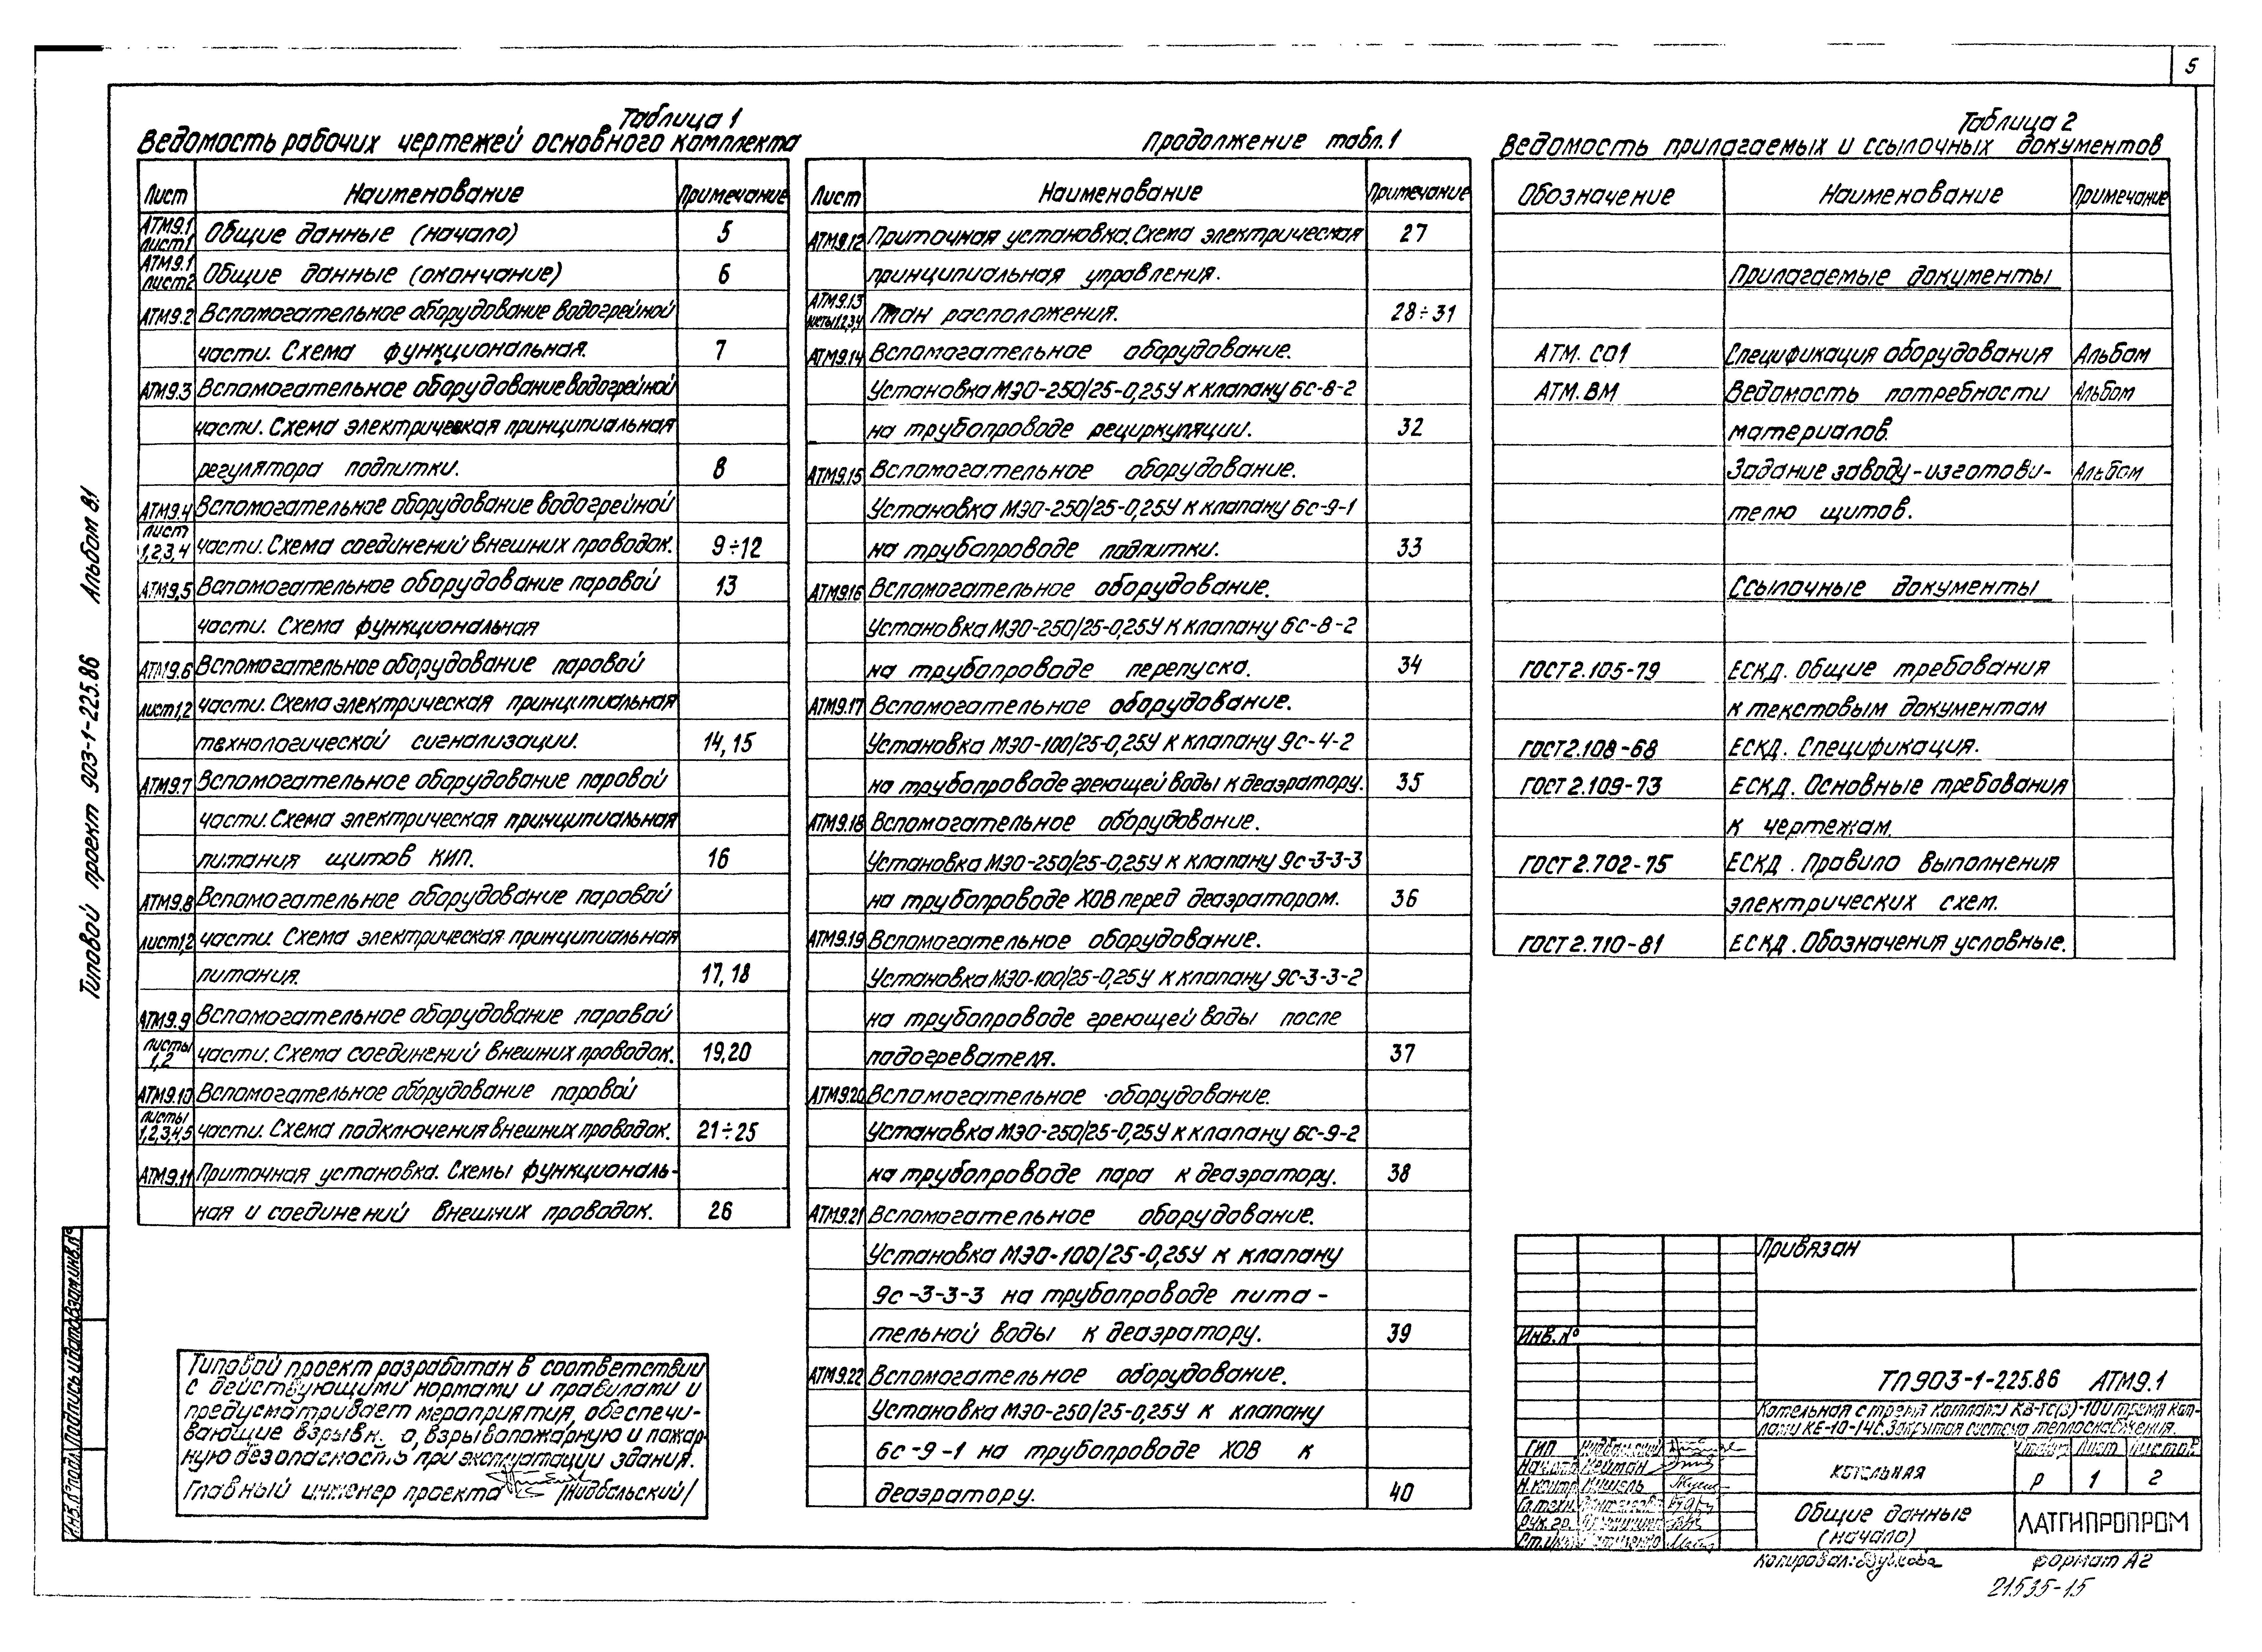 5
Таблица 1
Ведомость рабочих чертежей основного комплекта
Лист Наименование Примечание
АТМ9.1 лист1 Общие данные (начало) 5
АТМ9.1 лист2 Общие данные (окончание) 6
АТМ9.2 Вспомогательное оборудование водогрейной
части. Схема функциональная. 7
АТМ9.3 Вспомогательное оборудование водогрейной
части. Схема электрическая принципиальная
регулятора подпитки. 8
АТМ9.4 Вспомогательное оборудование водогрейной
лист 1,2,3,4 части. Схема соединений внешних проводок. 9÷12
АТМ9.5 Вспомогательное оборудование паровой 13
части. Схема функциональная
АТМ9.6 Вспомогательное оборудование паровой
лист1,2 части. Схема электрическая принципиальная
технологической сигнализации. 14,15
АТМ9.7 Вспомогательное оборудование паровой
части. Схема электрическая принципиальная
питания щитов КИП. 16
АТМ9.8 Вспомогательное оборудование паровой
лист1,2 части. Схема электрическая принципиальная
питания. 17,18
АТМ9.9 Вспомогательное оборудование паровой
листы 1,2 части. Схема соединений внешних проводок. 19,20
АТМ9.10 Вспомогательное оборудование паровой
листы 1,2,3,4,5 части. Схема подключения внешних проводок. 21÷25
АТМ9.11 Приточная установка. Схемы функциональ-
ная и соединений внешних проводок. 26
Продолжение табл.1
Лист Наименование Примечание
АТМ9.12 Приточная установка. Схема электрическая 27
принципиальная управления.
АТМ9.13 листы1,2,3,4 План расположения. 28÷31
АТМ9.14 Вспомогательное оборудование.
Установка МЭО-250/25-0,25У к клапану 6с-8-2
на трубопроводе рециркуляции. 32
АТМ9.15 Вспомогательное оборудование.
Установка МЭО-250/25-0,25У к клапану 6с-9-1
на трубопроводе подпитки. 33
АТМ9.16 Вспомогательное оборудование.
Установка МЭО-250/25-0,25У к клапану 6с-8-2
на трубопроводе перепуска. 34
АТМ9.17 Вспомогательное оборудование.
Установка МЭО-100/25-0,25У к клапану 9с-4-2
на трубопроводе греющей воды к деаэратору. 35
АТМ9.18 Вспомогательное оборудование.
Установка МЭО-250/25-0,25У к клапану 9с-3-3-3
на трубопроводе ХОВ перед деаэратором. 36
АТМ9.19 Вспомогательное оборудование.
Установка МЭО-100/25-0,25У к клапану 9с-3-3-2
на трубопроводе греющей воды после
подогревателя. 37
АТМ9.20 Вспомогательное оборудование.
Установка МЭО-250/25-0,25У к клапану 6с-9-2
на трубопроводе пара к деаэратору. 38
АТМ9.21 Вспомогательное оборудование.
Установка МЭО-100/25-0,25У к клапану
9с-3-3-3 на трубопроводе пита-
тельной воды к деаэратору. 39
АТМ9.22 Вспомогательное оборудование.
Установка МЭО-250/25-0,25У к клапану
6с-9-1 на трубопроводе ХОВ к
деаэратору. 40
Таблица 2
Ведомость прилагаемых и ссылочных документов
Обозначение Наименование Примечание
Прилагаемые документы
АТМ.СО1 Спецификация оборудования Альбом
АТМ.ВМ Ведомость потребности Альбом
материалов.
Задание заводу-изготови- Альбом
телю щитов.
Ссылочные документы
ГОСТ 2.105-79 ЕСКД. Общие требования
к текстовым документам
ГОСТ 2.108-68 ЕСКД. Спецификация.
ГОСТ 2.109-73 ЕСКД. Основные требования
к чертежам.
ГОСТ 2.702-75 ЕСКД. Правило выполнения
электрических схем.
ГОСТ 2.710-81 ЕСКД. Обозначения условные.
Типовой проект 903-1-225.86 Альбом 8.1
Инв.№ подл. Подпись и дата Взам.инв.№
Типовой проект разработан в соответствии
с действующими нормами и правилами и
предусматривает мероприятия, обеспечи-
вающие взрывную, взрывопожарную и пожар-
ную безопасность при эксплуатации здания.
Главный инженер проекта /Нидбальский/
Привязан
Инв.№
ТП 903-1-225.86 АТМ9.1
Котельная с тремя котлами КВ-ТС(В)-10 и тремя кот-
лами КЕ-10-14С. Закрытая система теплоснабжения.
ГИП Нидбальский
Нач.отд. Нейман
Н.контр.
Гл.техн.
Рук.гр.
Ст.инж.
котельная
Стадия Лист Листов
Р 1 2
Общие данные
(начало)
ЛАТГИПРОПРОМ
Копировал: формат А2
21535-15